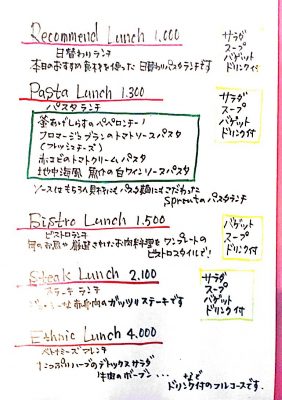 Recommend Lunch 1,000
日替わりランチ
本日のおすすめ食材を使った 日替わりパスタランチです
サラダ
スープ
バゲット
ドリンク付
Pasta Lunch 1.300
パスタランチ
釜あげしらすのペペロンチーノ
フロマージュブランのトマトソースパスタ
(フレッシュチーズ)
のトマトクリームパスタ
地中海風 魚介の白ワインソースパスタ
ソースはもちろん具材にもパスタ麺にもこだわった
Sproutのパスタランチ
サラダ
スープ
バゲット
ドリンク付
Bistro Lunch 1.500
ビストロランチ
旬の お魚や 厳選されたお肉料理を ワンプレートの
ビストロスタイルで!
バゲット
スープ
ドリンク付
Steak Lunch 2.100
ステーキ ランチ
赤身肉のガッツリステーキです
サラダ
スープ
バゲット
ドリンク付
Ethnic Lunch 4.000
ベトナミーズフレンチ
たっぷりハーブのデトックスサラダ
牛肉のフォーブン...
ドリンク付のフルコースです.